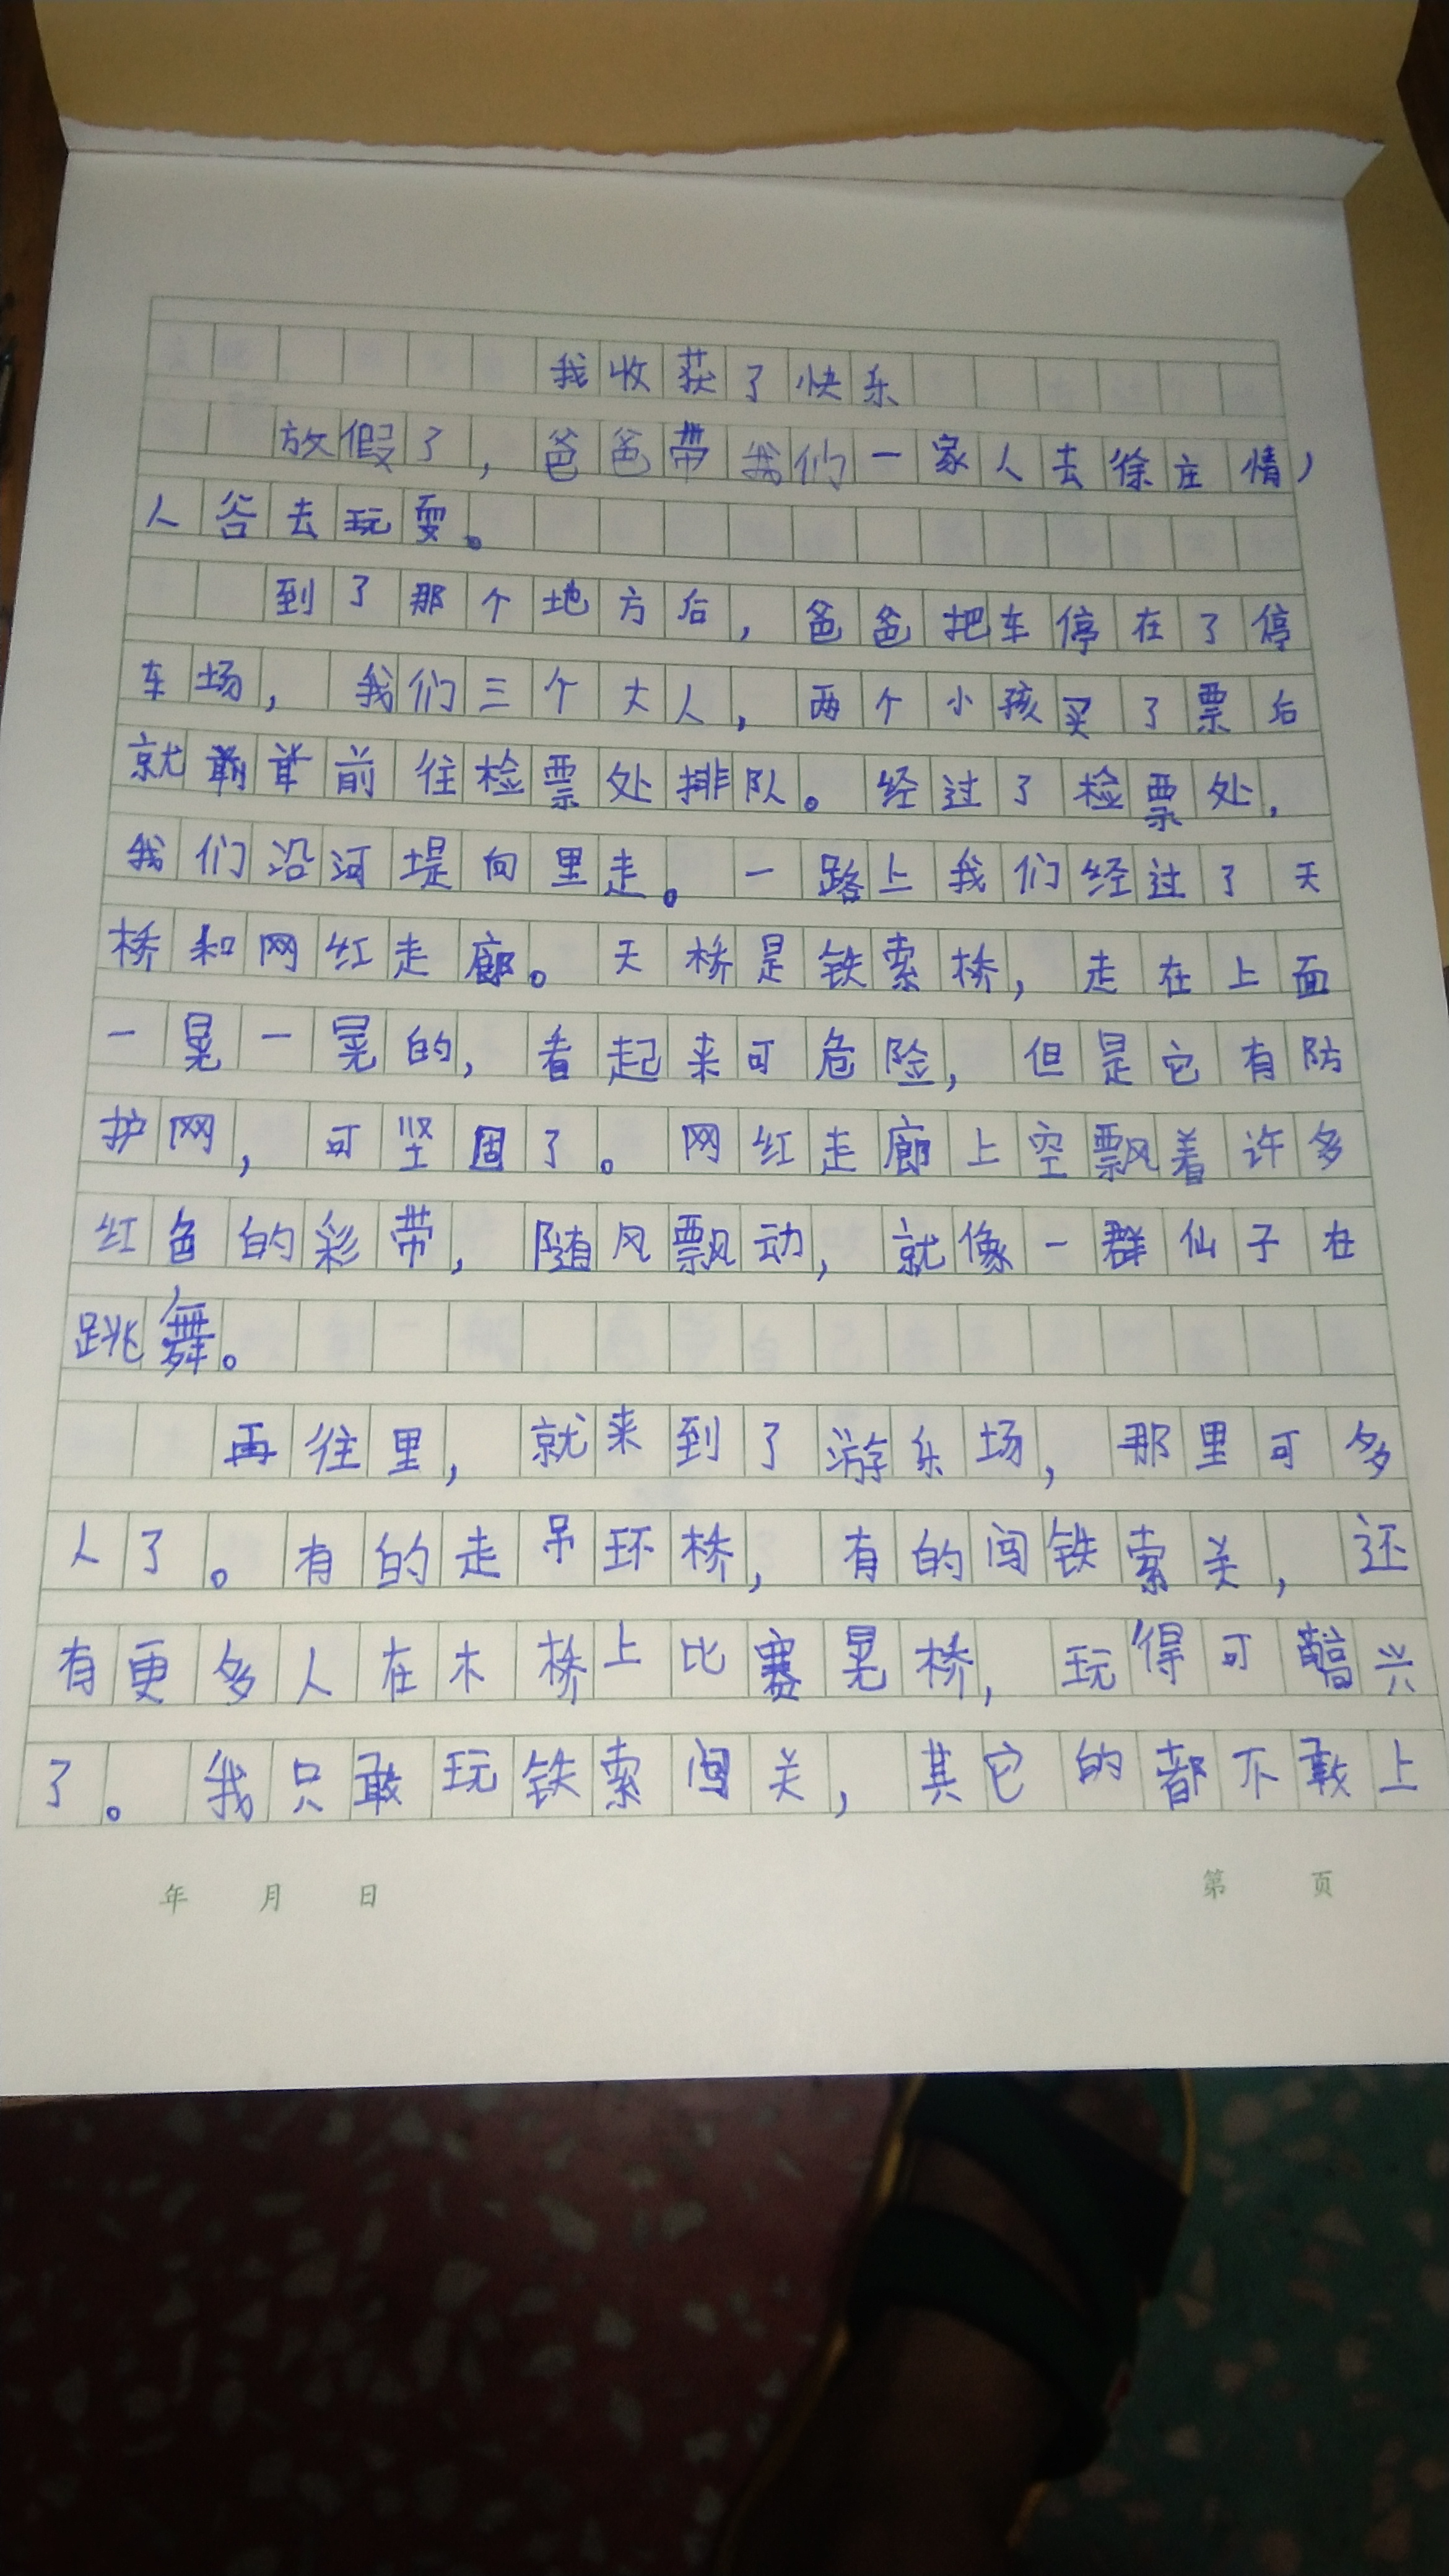 我收获了快乐
放假了，爸爸带我们一家人去徐庄情，
人谷去玩耍。
到了那个地方后，爸爸把车停在了停
车场，我们三个大人，两个小孩买了票后
就前往检票处排队。经过了检票处，
我们沿河堤向里走。一路上我们经过了天
桥和网红走廊。天桥是铁索桥，走在上面
一晃一晃的，看起来可危险，但是它有防
护网，可坚固了。网红走廊上空飘着许多
红色的彩带，随风飘动，就像一群仙子在
跳舞。
再往里，就来到了游乐场，那里可多
人了。有的走吊环桥，有的闯铁索关，还
有更多人在木桥上比赛晃桥，玩得可高兴
了。我只敢玩铁索闯关，其它的都不敢上
年 月 日 第 页